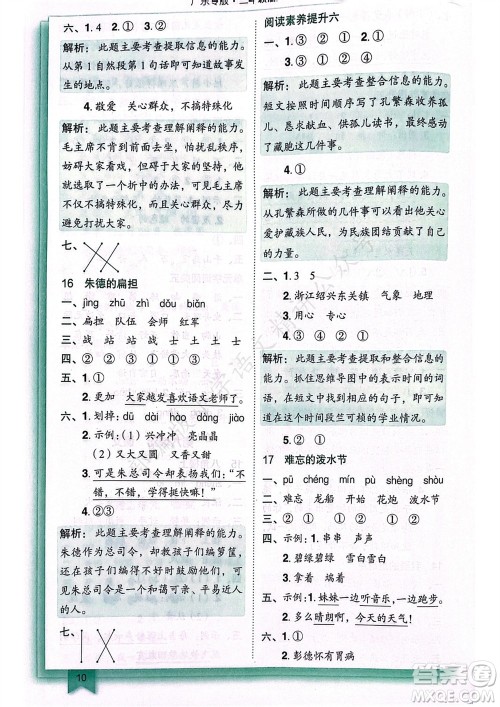 六、1.4 2.② ① ④
解析：此题主要考查提取信息的能力。
从第1自然段第1句话即可知道故事发
生的地点。
3.敬爱 关心群众，不搞特殊化
解析：此题主要考查理解阐释的能力。
毛主席不肯向前去理发，是怕扰乱秩序，
妨碍大家看戏，但碍于大家的坚持，他就
想了一个折中的办法，可见毛主席很关
心群众，不搞特殊化。
七、
16 朱德的扁担
一、jìng zhū zhàn shì zhě biǎn
二、扁担 队伍 会师 红军
三、战 站 站 战 士 土 士 士
四、② ② ③ ① ②
五、1.①
2.更加 大家越发喜欢语文老师了。
六、划掉：dū dài hào dàng jiào
1.示例：(1)兴冲冲 亮晶晶
(2)又大又圆 又香又甜
2.③
3.可是朱总司令却表扬他们：“不
错，不错，进步很快嘛！”
解析：此题主要考查理解阐释的能力。
朱德作为总司令，和孩子们编箩筐，还
在孩子们编得不好时鼓励他们，可见
他是一个和蔼可亲、关心孩子的总司
令。
七、
10
阅读素养提升六
一、1.①
解析：此题主要考查整合信息的能力。
短文按顺序描写了孔繁森收养孤
儿、恳求献血、供孤儿读书，最后写
了藏胞这几件事。
2.①
解析：此题主要考查理解阐释的能力。
从孔繁森所做的几件事可以看出他关心
爱护藏族人民，为民族团结贡献自己的
力量。
二、1.3 5
2.浙江绍兴东关镇 气象 地理
3.用心 专心
4.③
解析：此题主要考查提取和整合信息
的能力。抓住思维导图中时间的词
语，在短文中找到相应的句子，就能
找到对应时间段竺可桢的学业情况。
5.②
17 难忘的泼水节
一、pū chéng mín pù shèng shòu
二、难忘 龙船 开始 花炮 泼水
三、② ① ② ① ① ②
四、示例：1.串串 声声
2.碧绿碧绿 雪白雪白
3.拿着 端着
五、示例：1.妹妹一边听音乐，一边跑步。
2.多么晴朗啊，今天的天气！
六、1.①
2.彭德怀有胃病